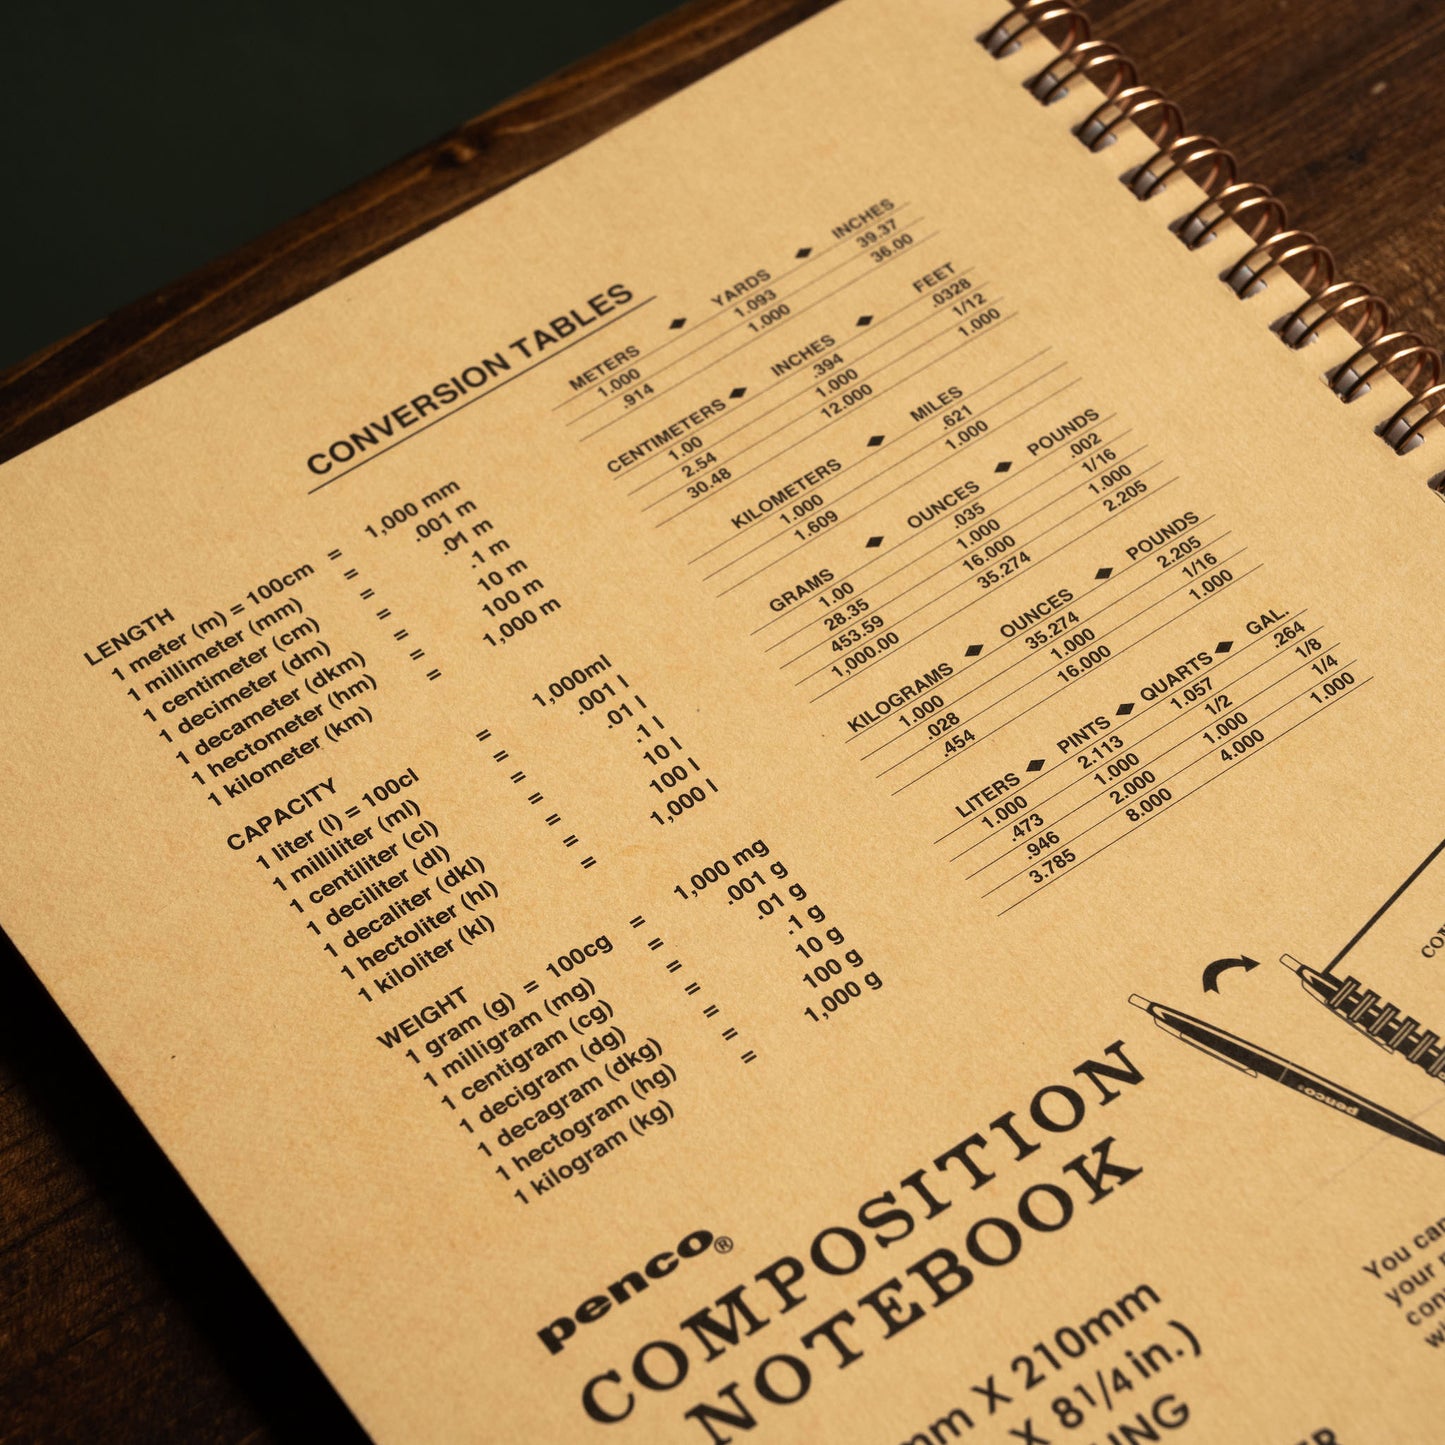 CONVERSION TABLES
LENGTH
1 meter (m) = 100cm = 1,000 mm
1 millimeter (mm) = .001 m
1 centimeter (cm) = .01 m
1 decimeter (dm) = .1 m
1 decameter (dkm) = 10 m
1 hectometer (hm) = 100 m
1 kilometer (km) = 1,000 m
CAPACITY
1 liter (l) = 100cl = 1,000ml
1 milliliter (ml) = .001 l
1 centiliter (cl) = .01 l
1 deciliter (dl) = .1 l
1 decaliter (dkl) = 10 l
1 hectoliter (hl) = 100 l
1 kiloliter (kl) = 1,000 l
WEIGHT
1 gram (g) = 100cg = 1,000 mg
1 milligram (mg) = .001 g
1 centigram (cg) = .01 g
1 decigram (dg) = .1 g
1 decagram (dkg) = 10 g
1 hectogram (hg) = 100 g
1 kilogram (kg) = 1,000 g
METERS ◆ YARDS ◆ INCHES
1.000 1.093 39.37
.914 1.000 36.00
CENTIMETERS ◆ INCHES ◆ FEET
1.00 .394 .0328
2.54 1.000 1/12
30.48 12.000 1.000
KILOMETERS ◆ MILES
1.000 .621
1.609 1.000
GRAMS ◆ OUNCES ◆ POUNDS
1.00 .035 .002
28.35 1.000 1/16
453.59 16.000 1.000
1,000.00 35.274 2.205
KILOGRAMS ◆ OUNCES ◆ POUNDS
1.000 35.274 2.205
.028 1.000 1/16
.454 16.000 1.000
LITERS ◆ PINTS ◆ QUARTS ◆ GAL.
1.000 2.113 1.057 .264
.473 1.000 1/2 1/8
.946 2.000 1.000 1/4
3.785 8.000 4.000 1.000
penco®
COMPOSITION
NOTEBOOK
mm X 210mm
X 8 1/4 in.)
penco®
You can
your